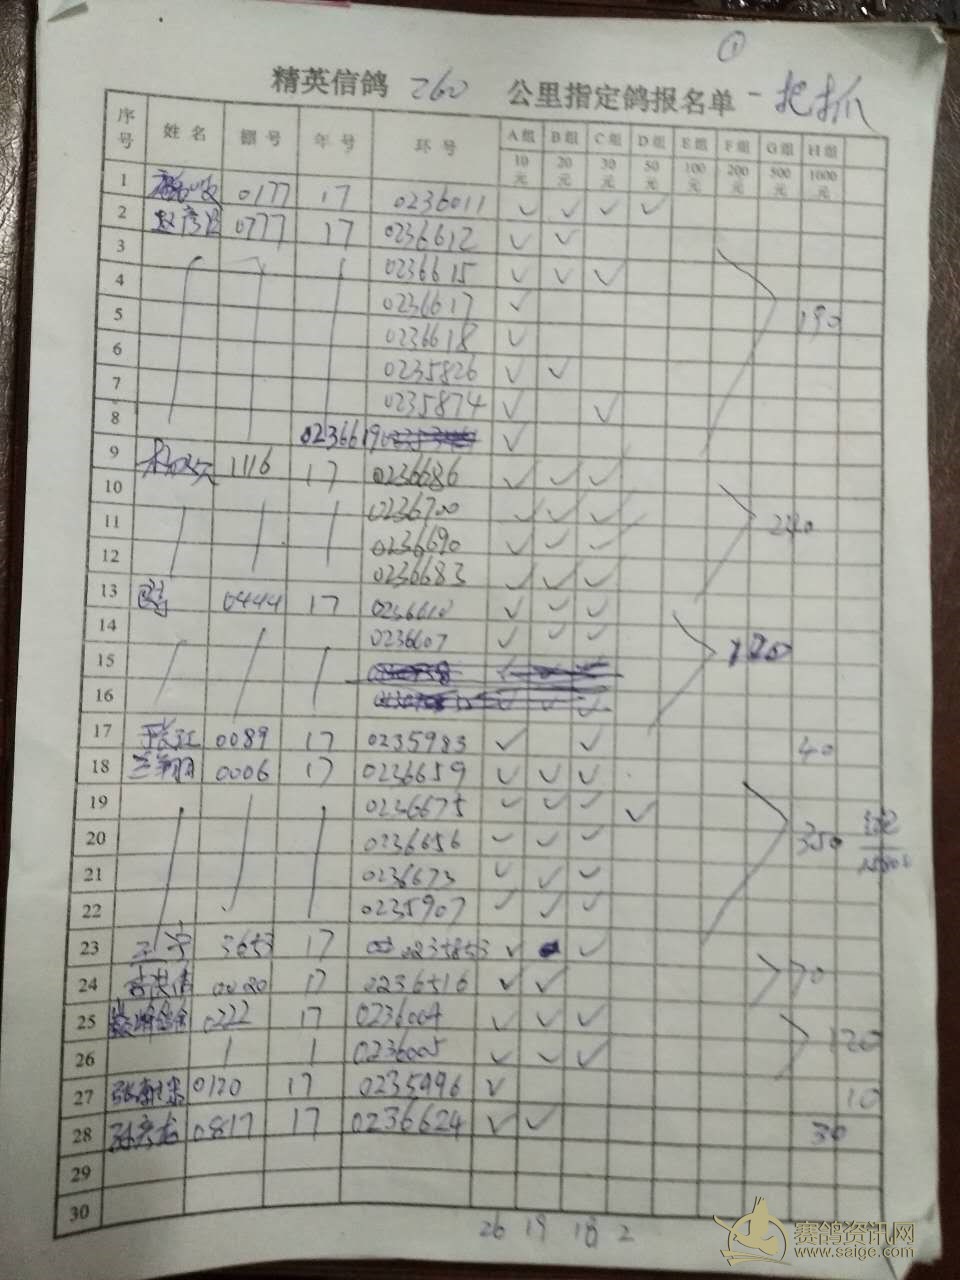 ①
精英信鸽 260 公里指定鸽报名单 一把抓
序号 姓名 棚号 年号 环号 A组 B组 C组 D组 E组 F组 G组 H组
10元 20元 30元 50元 100元 200元 500元 1000元
1 0177 17 0236011 ✓ ✓ ✓ ✓
2 0777 17 0236612 ✓ ✓
3 0236615 ✓ ✓ ✓
4 0236617 ✓ 190
5 0236618 ✓
6 0235826 ✓ ✓
7 0235874 ✓ ✓
8 0236619 ✓
9 1116 17 0236686 ✓ ✓ ✓
10 0236700 ✓ ✓ ✓ 240
11 0236690 ✓ ✓ ✓
12 0236683 ✓ ✓ ✓
13 0444 17 0236610 ✓ ✓ ✓
14 0236607 ✓ ✓ ✓ 120
15
16
17 张红 0089 17 0235983 ✓ ✓ 40
18 兰翔羽 0006 17 0236659 ✓ ✓ ✓
19 0236675 ✓ ✓ ✓ ✓
20 0236656 ✓ ✓ ✓ 350
21 0236673 ✓ ✓ ✓
22 0235907 ✓ ✓ ✓
23 王宁 3653 17 0235853 ✓ ✓
24 0020 17 0236516 ✓ ✓ 70
25 0222 17 0236004 ✓ ✓ ✓
26 0236005 ✓ ✓ ✓ 120
27 0120 17 0235996 ✓ 10
28 0817 17 0236624 ✓ ✓ 30
29
30
26 19 18 2
赛鸽资讯网
www.saige.com